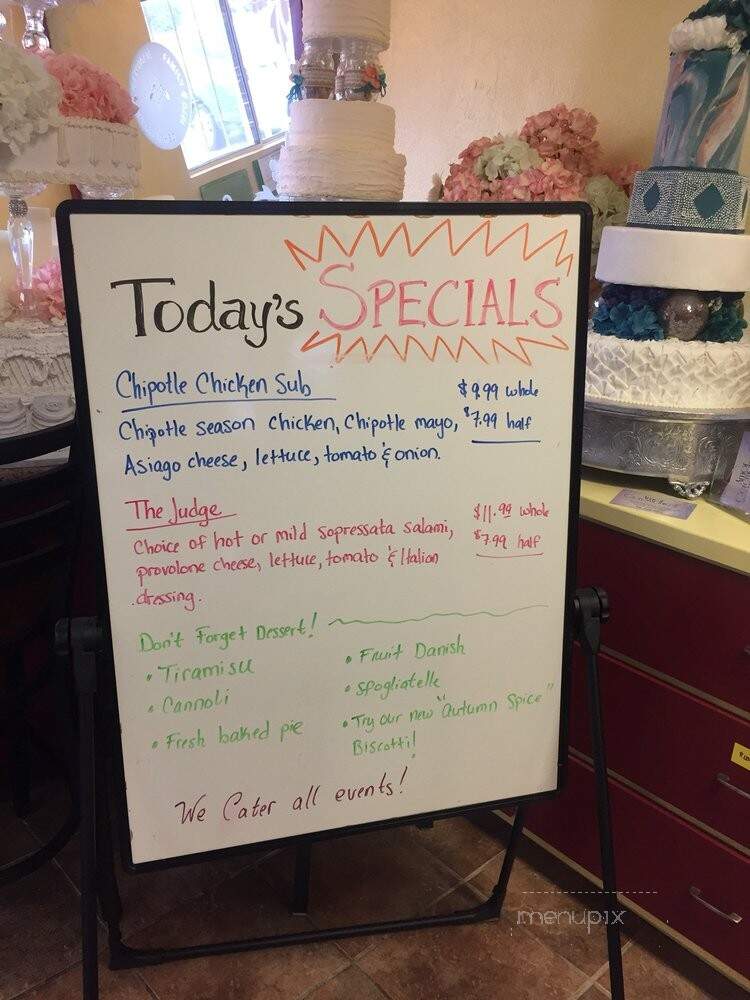 Today's SPECIALS
Chipotle Chicken Sub $9.99 whole
Chipotle season chicken, Chipotle mayo, $7.99 half
Asiago cheese, lettuce, tomato & onion.
The Judge $11.99 whole
Choice of hot or mild sopressata salami, $7.99 half
provolone cheese, lettuce, tomato & Italian
dressing.
Don't Forget Dessert!
• Tiramisu
• Cannoli
• Fresh baked pie
• Fruit Danish
• Sfogliatelle
• Try our new "Autumn Spice"
Biscotti!
We Cater all events!
menupix